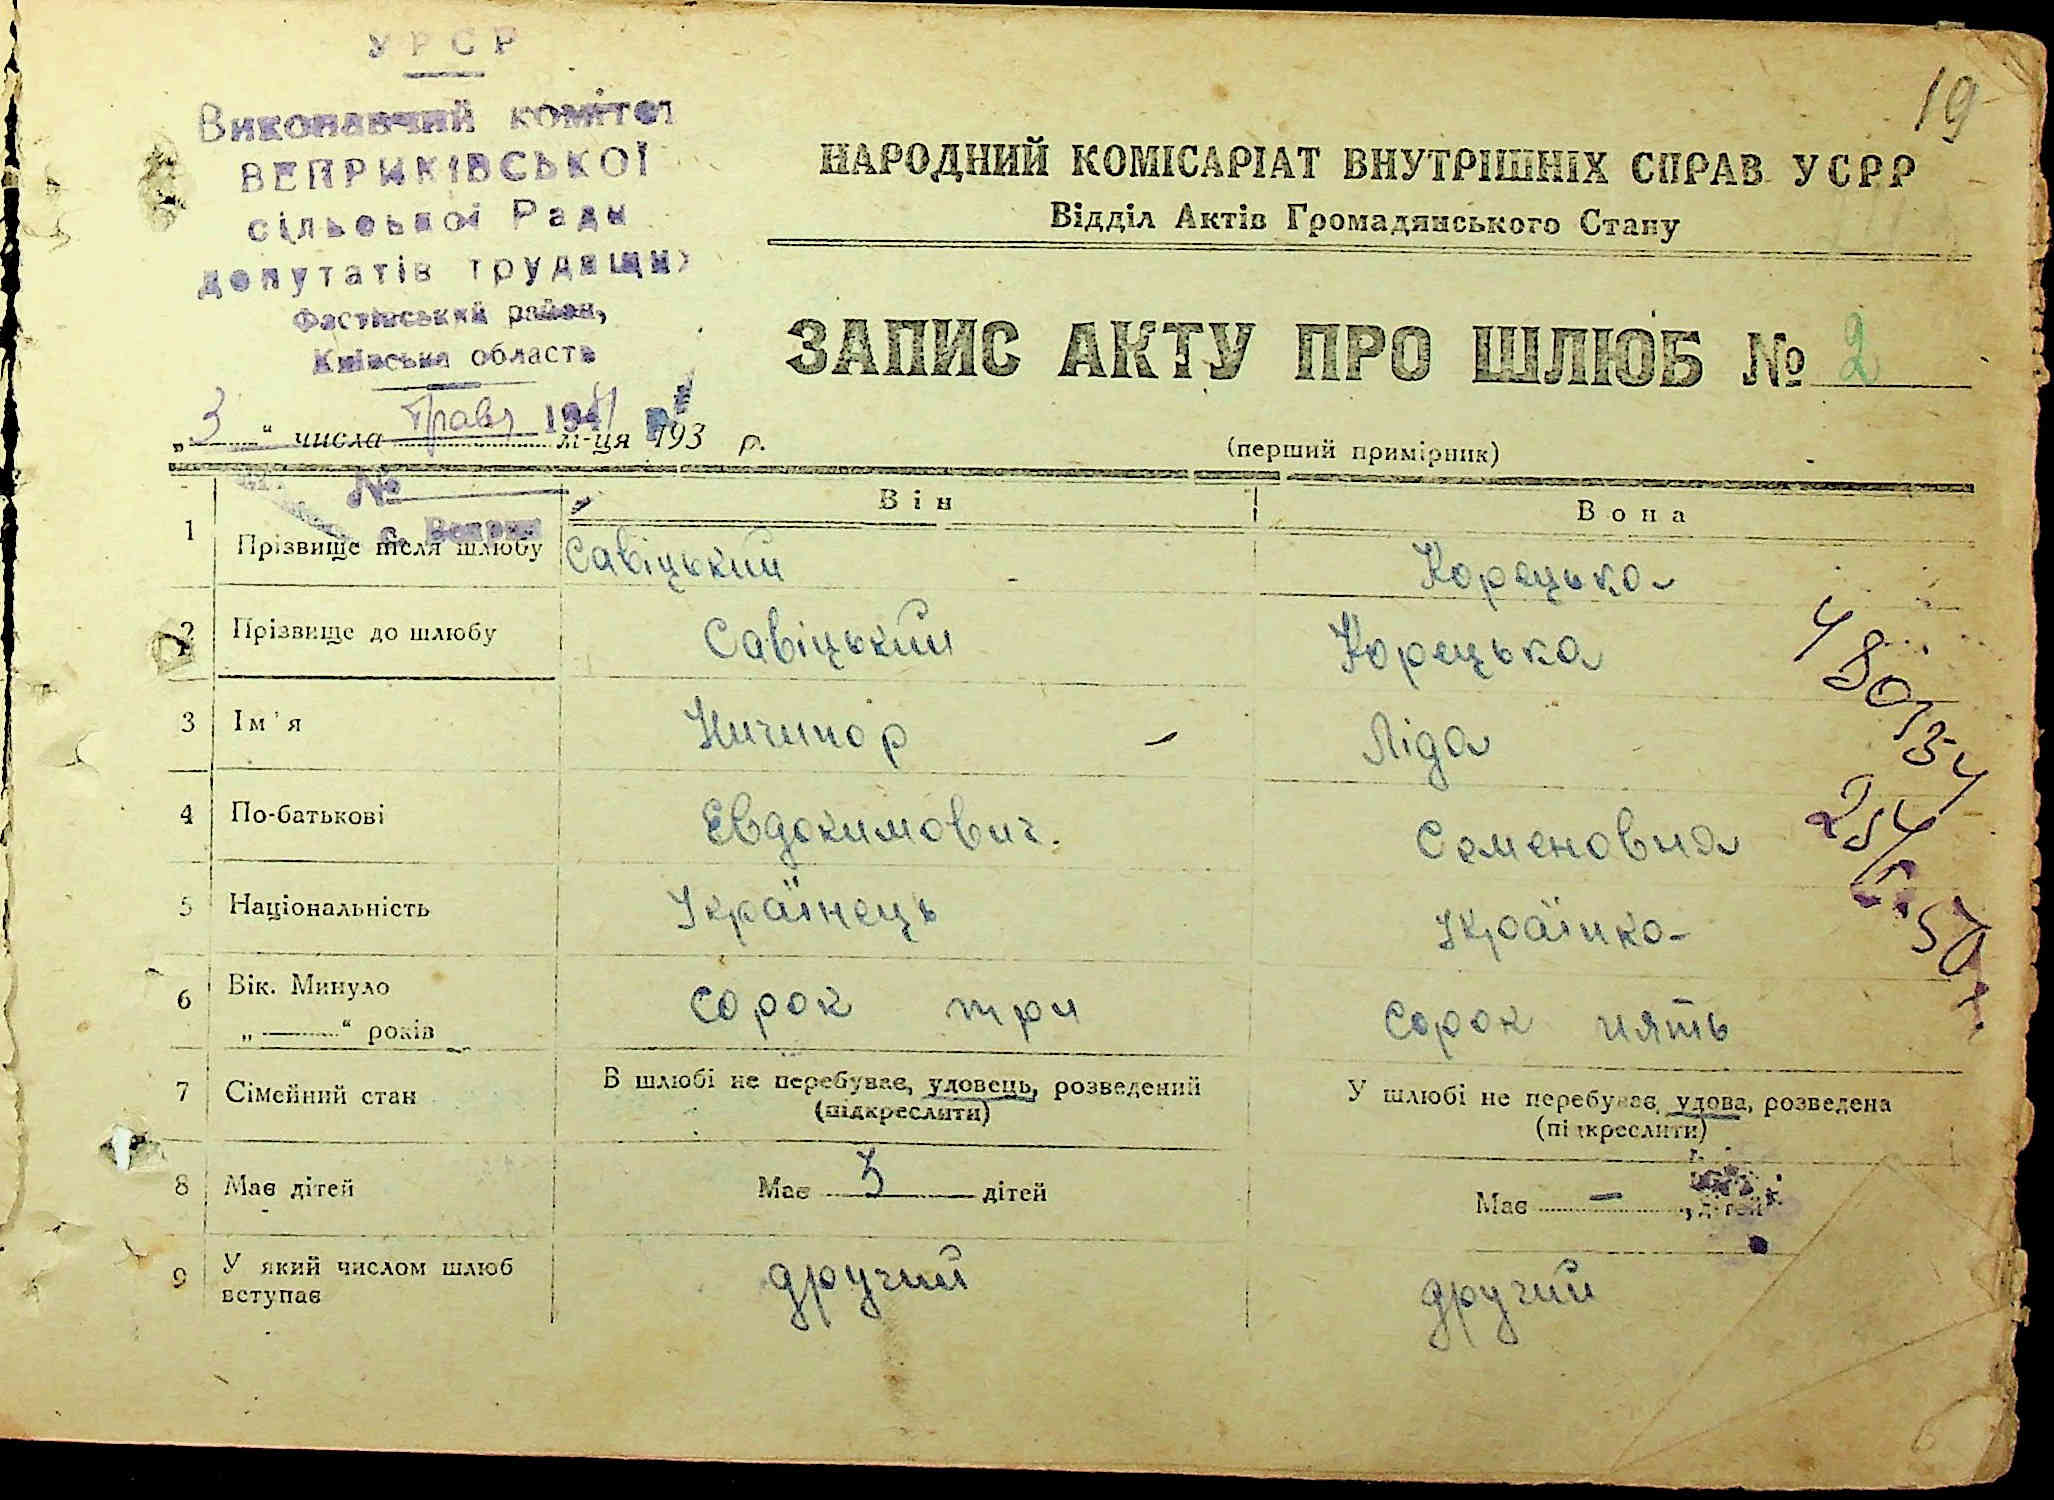 УРСР
Виконавчий комітет
ВЕПРИКІВСЬКОЇ
сільської Ради
депутатів трудящих
Фастівський район,
Київська область
19
НАРОДНИЙ КОМІСАРІАТ ВНУТРІШНІХ СПРАВ УСРР
Відділ Актів Громадянського Стану
ЗАПИС АКТУ ПРО ШЛЮБ № 2
„3“ числа Травя 1941 м-ця 193 р.
(перший примірник)
№
с. Веприк
Він
Вона
1 Прізвище після шлюбу Савіцький Корецька
2 Прізвище до шлюбу Савіцький Корецька
3 Ім'я Ничипор Ліда
4 По-батькові Евдокимович. Семеновна
5 Національність Українець Українка
6 Вік. Минуло „ “ років сорок три сорок пять
7 Сімейний стан В шлюбі не перебуває, удовець, розведений (підкреслити) У шлюбі не перебуває, удова, розведена (підкреслити)
8 Має дітей Має 3 дітей Має – дітей
9 У який числом шлюб вступає другий другий